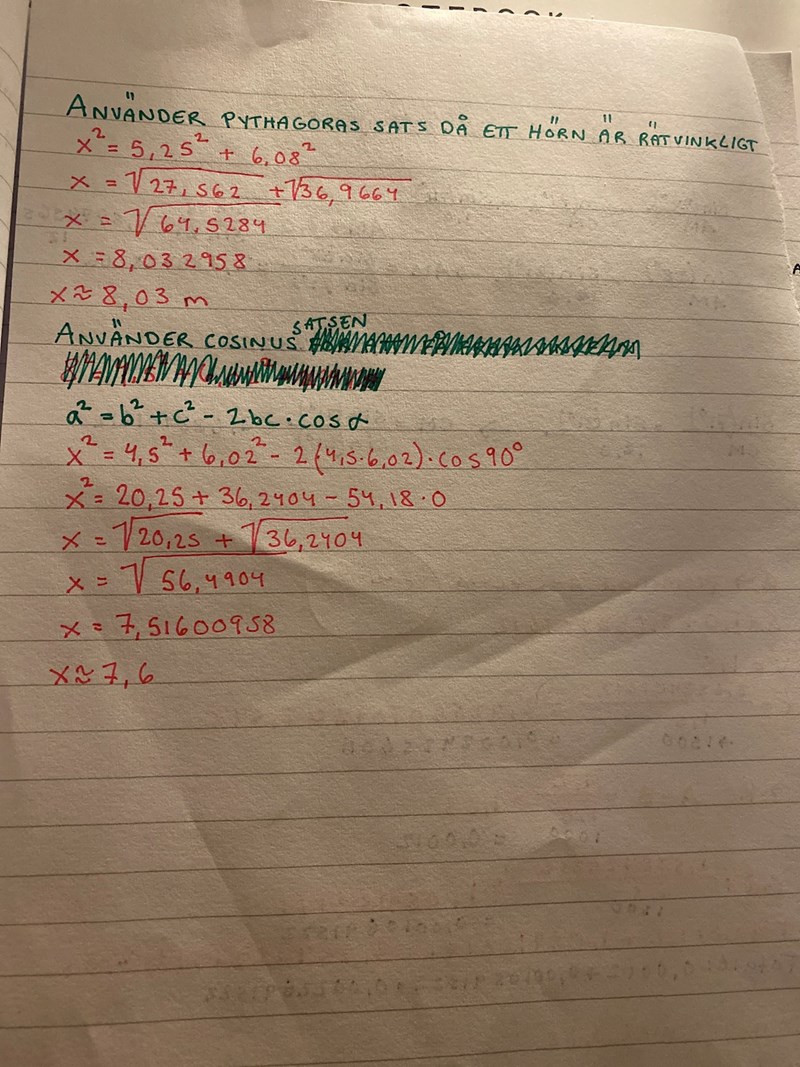 ANVÄNDER PYTHAGORAS SATS DÅ ETT HÖRN ÄR RÄTVINKLIGT
x² = 5,25² + 6,08²
x = √27,562 + √36,9664
x = √64,5284
x = 8,032958
x ≈ 8,03 m
ANVÄNDER COSINUS SATSEN
a² = b² + c² - 2bc · cos α
x² = 4,5² + 6,02² - 2(4,5 · 6,02) · cos 90°
x² = 20,25 + 36,2404 - 54,18 · 0
x = √20,25 + √36,2404
x = √56,4904
x = 7,51600958
x ≈ 7,6